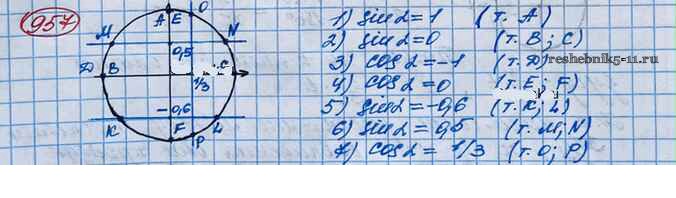 957
A E O
M N
0,5
D B C
1/3
-0,6
K F L
P
1) sin α = 1 (т. A)
2) sin α = 0 (т. B; C)
3) cos α = -1 (т. D)
reshebnik5-11.ru
4) cos α = 0 (т. E; F)
5) sin α = -0,6 (т. K; L)
6) sin α = 0,5 (т. M; N)
7) cos α = 1/3 (т. O; P)